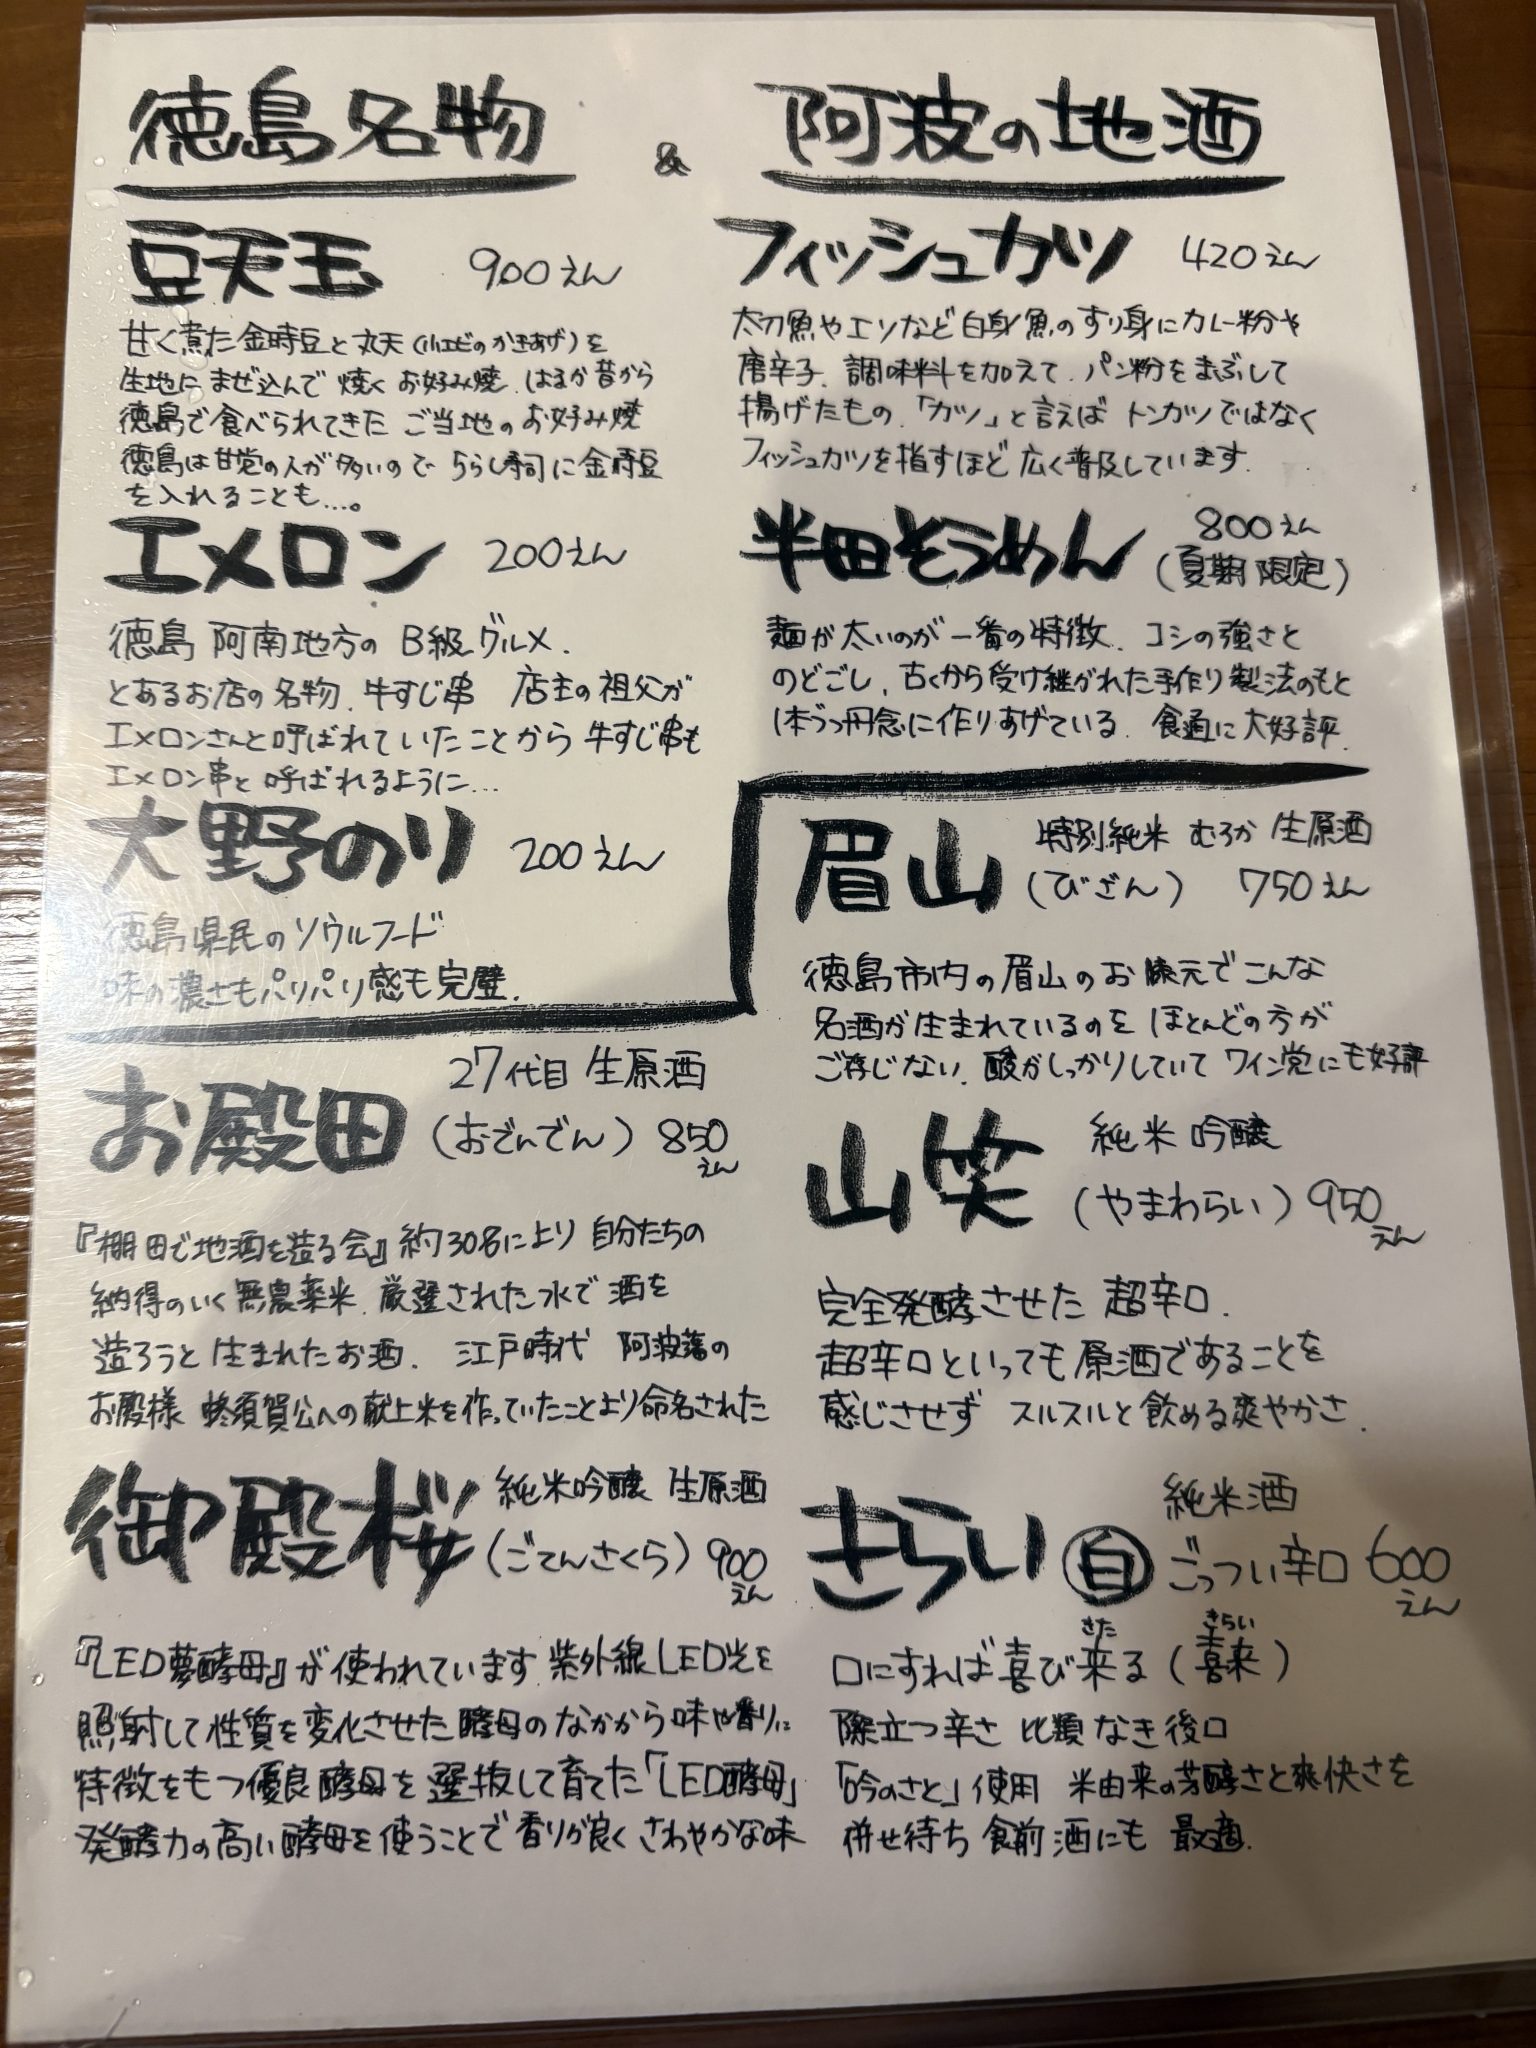 徳島名物 & 阿波の地酒
豆天玉 900えん
甘く煮た金時豆と丸天(小エビのかきあげ)を
生地にまぜ込んで焼くお好み焼.はるか昔から
徳島で食べられてきたご当地のお好み焼
徳島は甘党の人が多いのでちらし寿司に金時豆
を入れることも....。
エメロン 200えん
徳島 阿南地方の B級グルメ.
とあるお店の名物.牛すじ串 店主の祖父が
エメロンさんと呼ばれていたことから牛すじ串も
エメロン串と呼ばれるように...
大野のり 200えん
徳島県民のソウルフード
味の濃さもパリパリ感も完璧.
フィッシュカツ 420えん
太刀魚やエソなど白身魚のすり身にカレー粉や
唐辛子.調味料を加えて.パン粉をまぶして
揚げたもの.「カツ」と言えばトンカツではなく
フィッシュカツを指すほど広く普及しています.
半田そうめん 800えん
(夏期限定)
麺が太いのが一番の特徴.コシの強さと
のどごし.古くから受け継がれた手作り製法のもと
1本づつ丹念に作りあげている.食通に大好評.
お殿田 27代目 生原酒
(おでんでん) 850えん
『棚田で地酒を造る会』約30名により自分たちの
納得のいく無農薬米.厳選された水で酒を
造ろうと生まれたお酒. 江戸時代 阿波藩の
お殿様 蜂須賀公への献上米を作っていたことより命名された
御殿桜 純米吟醸 生原酒
(ごてんさくら) 900えん
『LED夢酵母』が使われています.紫外線LED光を
照射して性質を変化させた酵母のなかから味や香りに
特徴をもつ優良酵母を選抜して育てた「LED酵母」
発酵力の高い酵母を使うことで香りが良くさわやかな味
眉山 特別純米 むろか 生原酒
(びざん) 750えん
徳島市内の眉山のお膝元でこんな
名酒が生まれているのをほとんどの方が
ご存じない.酸がしっかりしていてワイン党にも好評
山笑 純米吟醸
(やまわらい) 950えん
完全発酵させた 超辛口.
超辛口といっても原酒であることを
感じさせず スルスルと飲める爽やかさ.
きらい 白 純米酒
ごっつい辛口 600えん
口にすれば喜び来(きた)る(喜来(きらい))
際立つ辛さ 比類なき後口
「吟のさと」使用 米由来の芳醇さと爽快さを
併せ待ち 食前酒にも 最適.